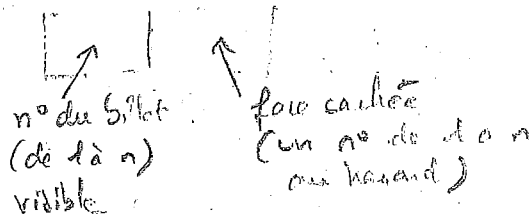 n° du billet
(de 1 à n)
visible
face cachée
(un n° de 1 à n
au hasard)